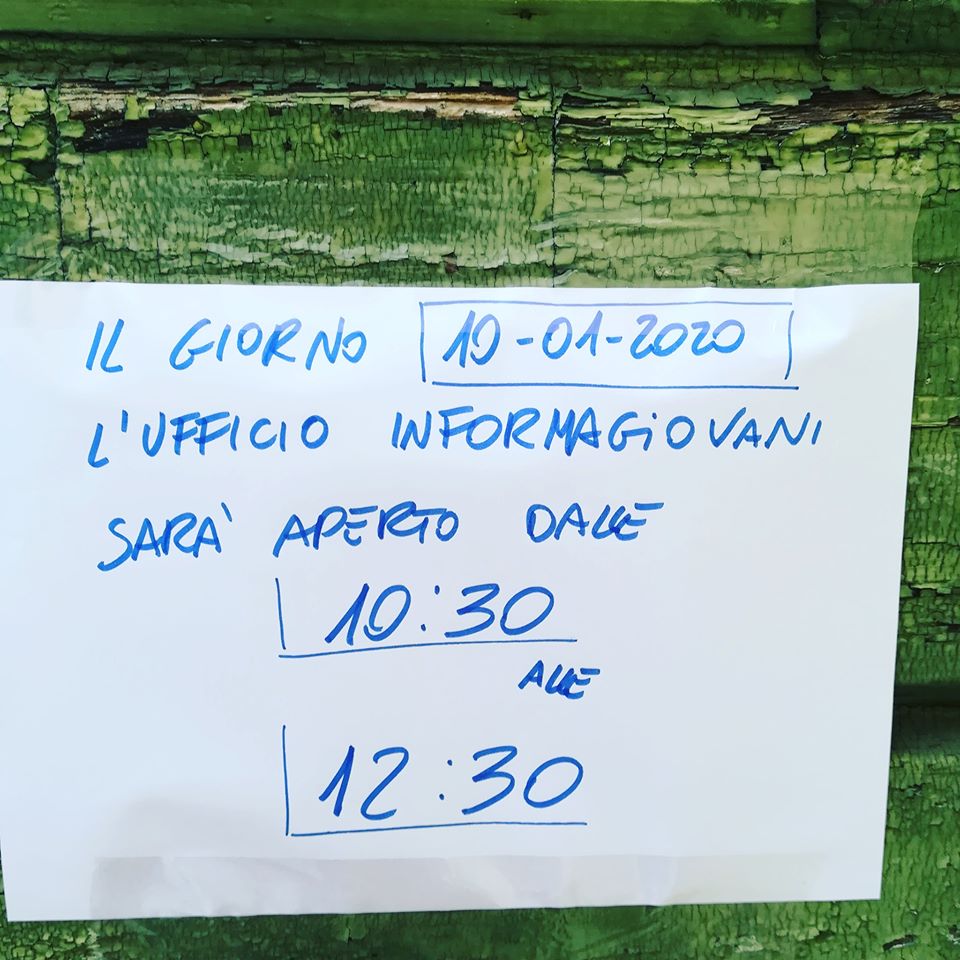 IL GIORNO 10-01-2020
L'UFFICIO INFORMAGiOVANI
SARÀ APERTO DALLE
10:30
ALLE
12:30